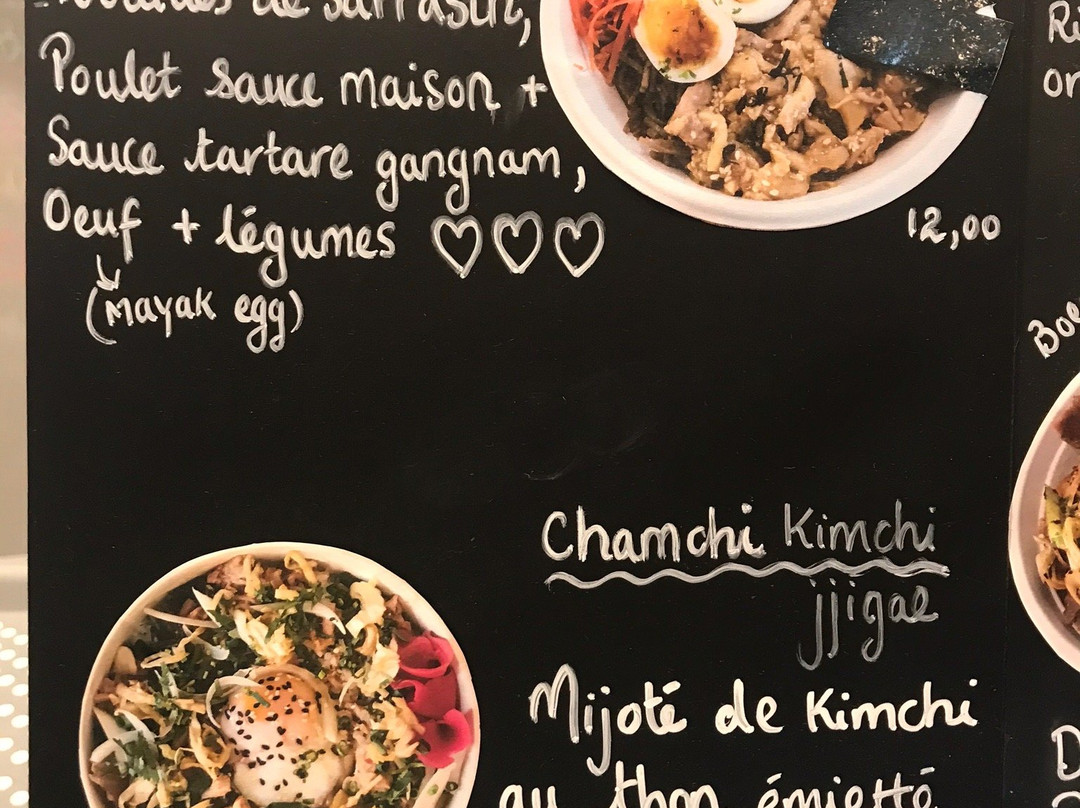 de sarrasin,
Poulet sauce maison +
Sauce tartare gangnam,
Oeuf + légumes ♡♡♡
(Mayak egg)
12,00
Chamchi Kimchi
jjigae
Mijoté de Kimchi
au thon émietté